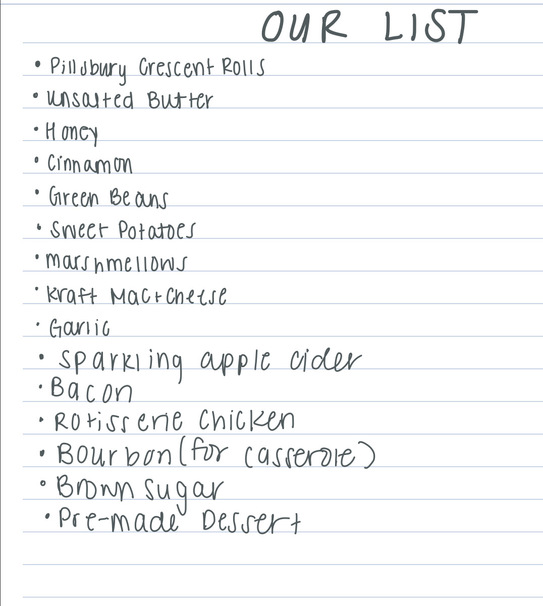 OUR LIST
• Pillsbury Crescent Rolls
• Unsalted Butter
• Honey
• Cinnamon
• Green Beans
• Sweet Potatoes
• marshmellows
• Kraft Mac + Cheese
• Garlic
• Sparkling apple cider
• Bacon
• Rotisserie Chicken
• Bourbon (for casserole)
• Brown Sugar
• Pre-made Dessert